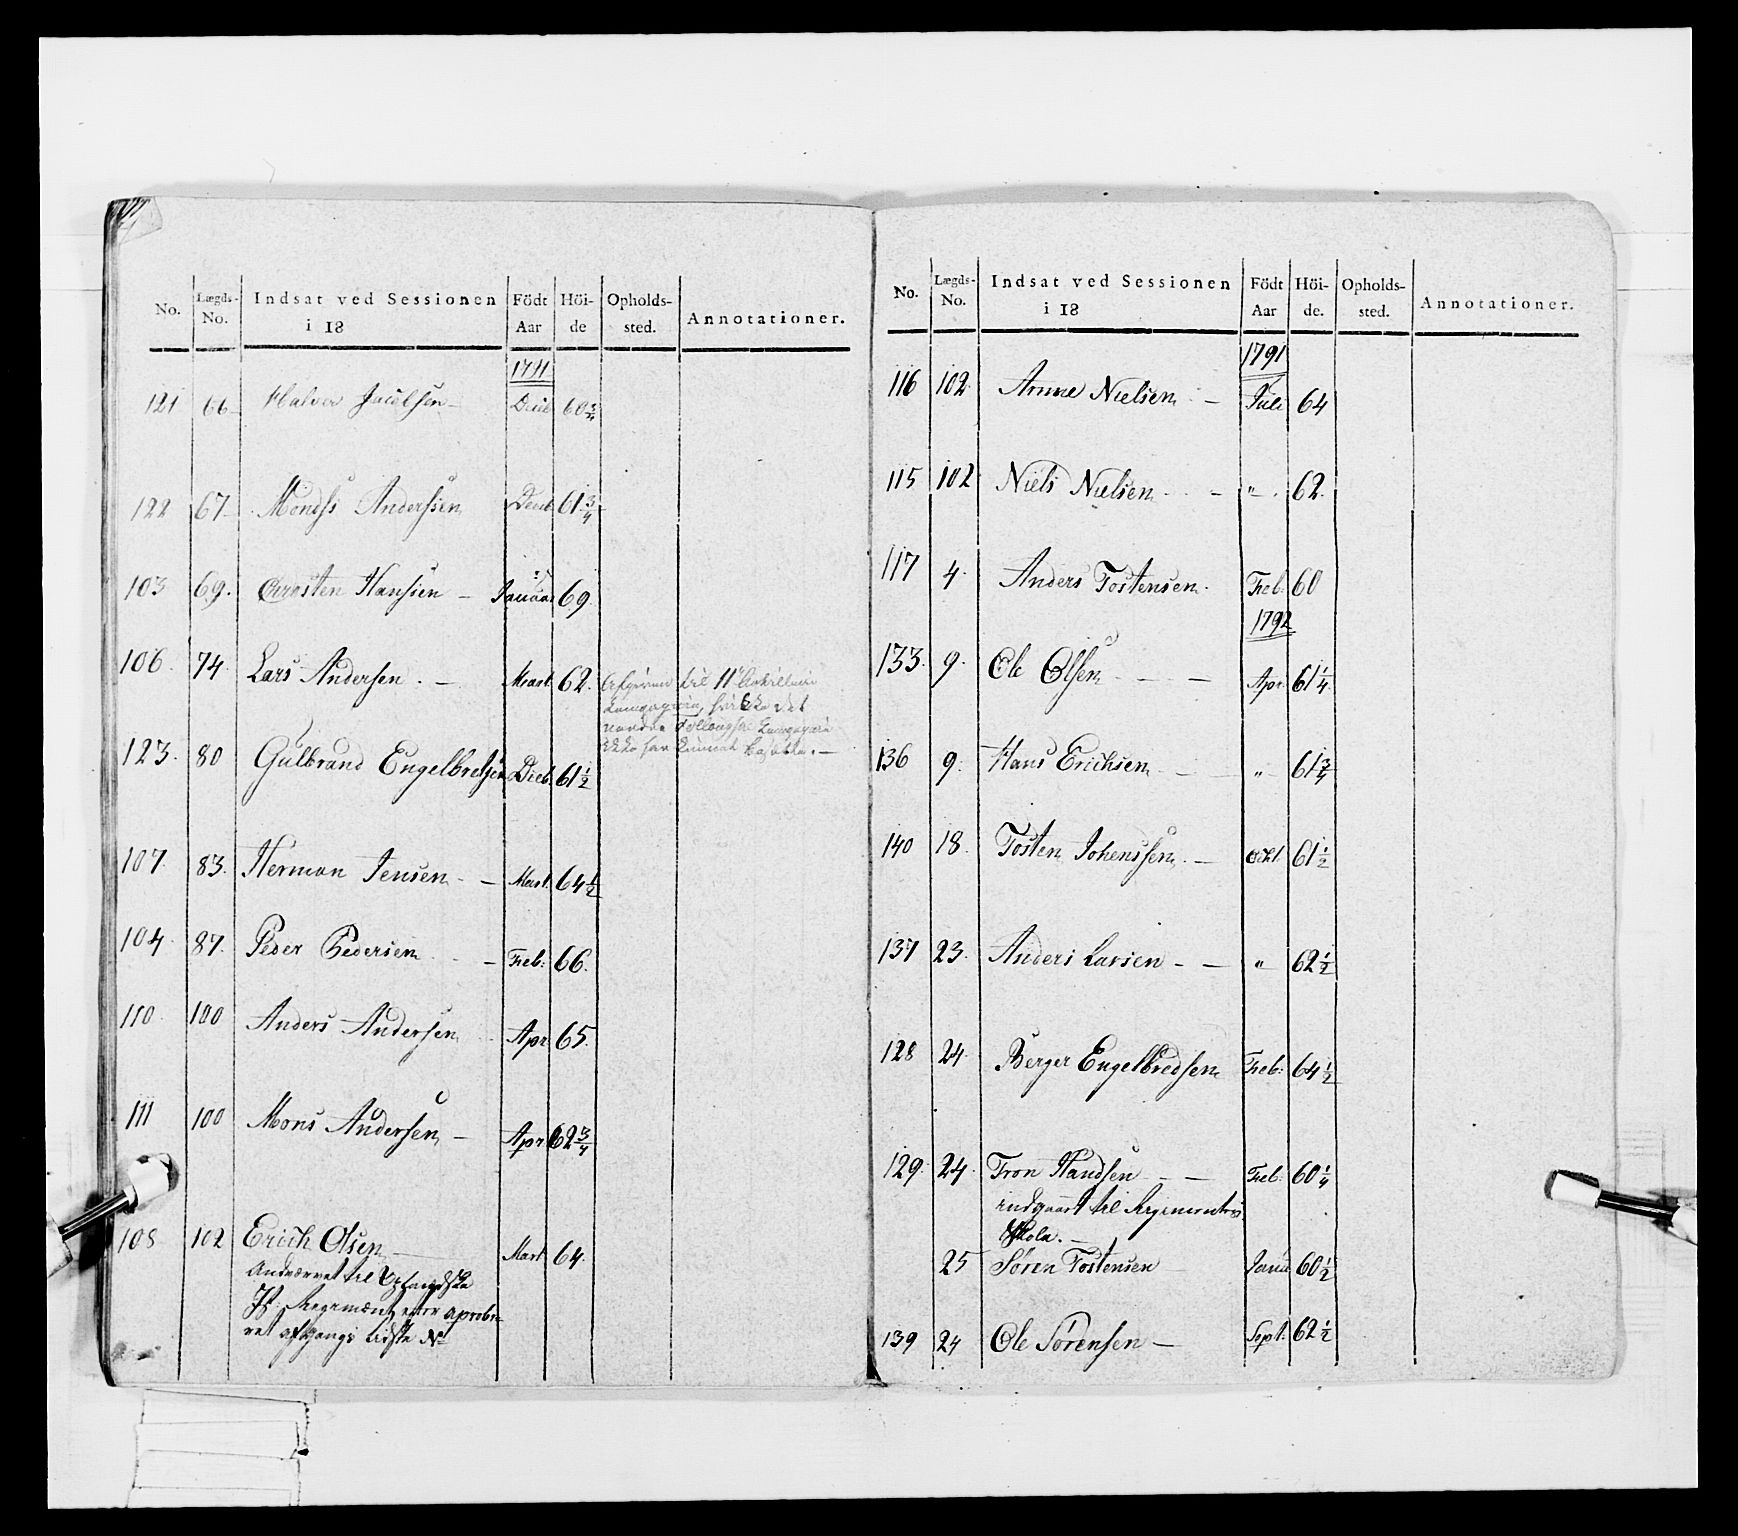 No. Lægds-No. Indsat ved Sessionen i 18 Födt Aar Höi-de Opholds-sted. Annotationer.
1791
121 66 Halvor Jacobsen Deceb 60 3/4
122 67 Mondss Anderssen Deceb 61 3/4
103 69. Carsten Hanssen Januar 69.
106. 74. Lars Andersen. Mart 62. til 11te
det
123. 80 Gulbrand Engelbretsen Dceb. 61 1/2
107. 83. Herman Jensen Mart. 64 1/2
104. 87. Peder Pedersen Feb: 66.
110. 100 Anders Andersen Apr 65.
111 100 Mons Andersen Apr 62 3/4
108 102 Erich Olsen Mart 64.
til
Regiment efter aprobe-
ret afgangs Liste No
No. Lægds-No. Indsat ved Sessionen i 18 Födt Aar Höi-de. Opholds-sted. Annotationer.
1791
116 102. Arnne Nielsen Juli 64
115 102 Niels Nielsen " 62.
117 4. Anders Tostensen. Feb. 60
1792
133. 9. Ole Olsen Apr 61 1/4
136 9. Hans Erichsen " 61 3/4
140 18. Tosten Johenssen. Oct. 61 1/2
137 23. Anders Larsen " 62 1/2
128 24. Berger Engelbredsen Feb: 64 1/2
129. 24. Tron Handsen Feb: 60 1/4
indgaaet til Regimentes
Skole.
25 Søren Tostensen Janu 60 1/2
139 24 Ole Sørensen Sept. 62 1/2